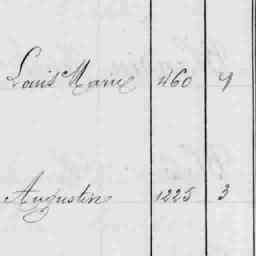 Louis Marie 460 9
Augustin 1225 3